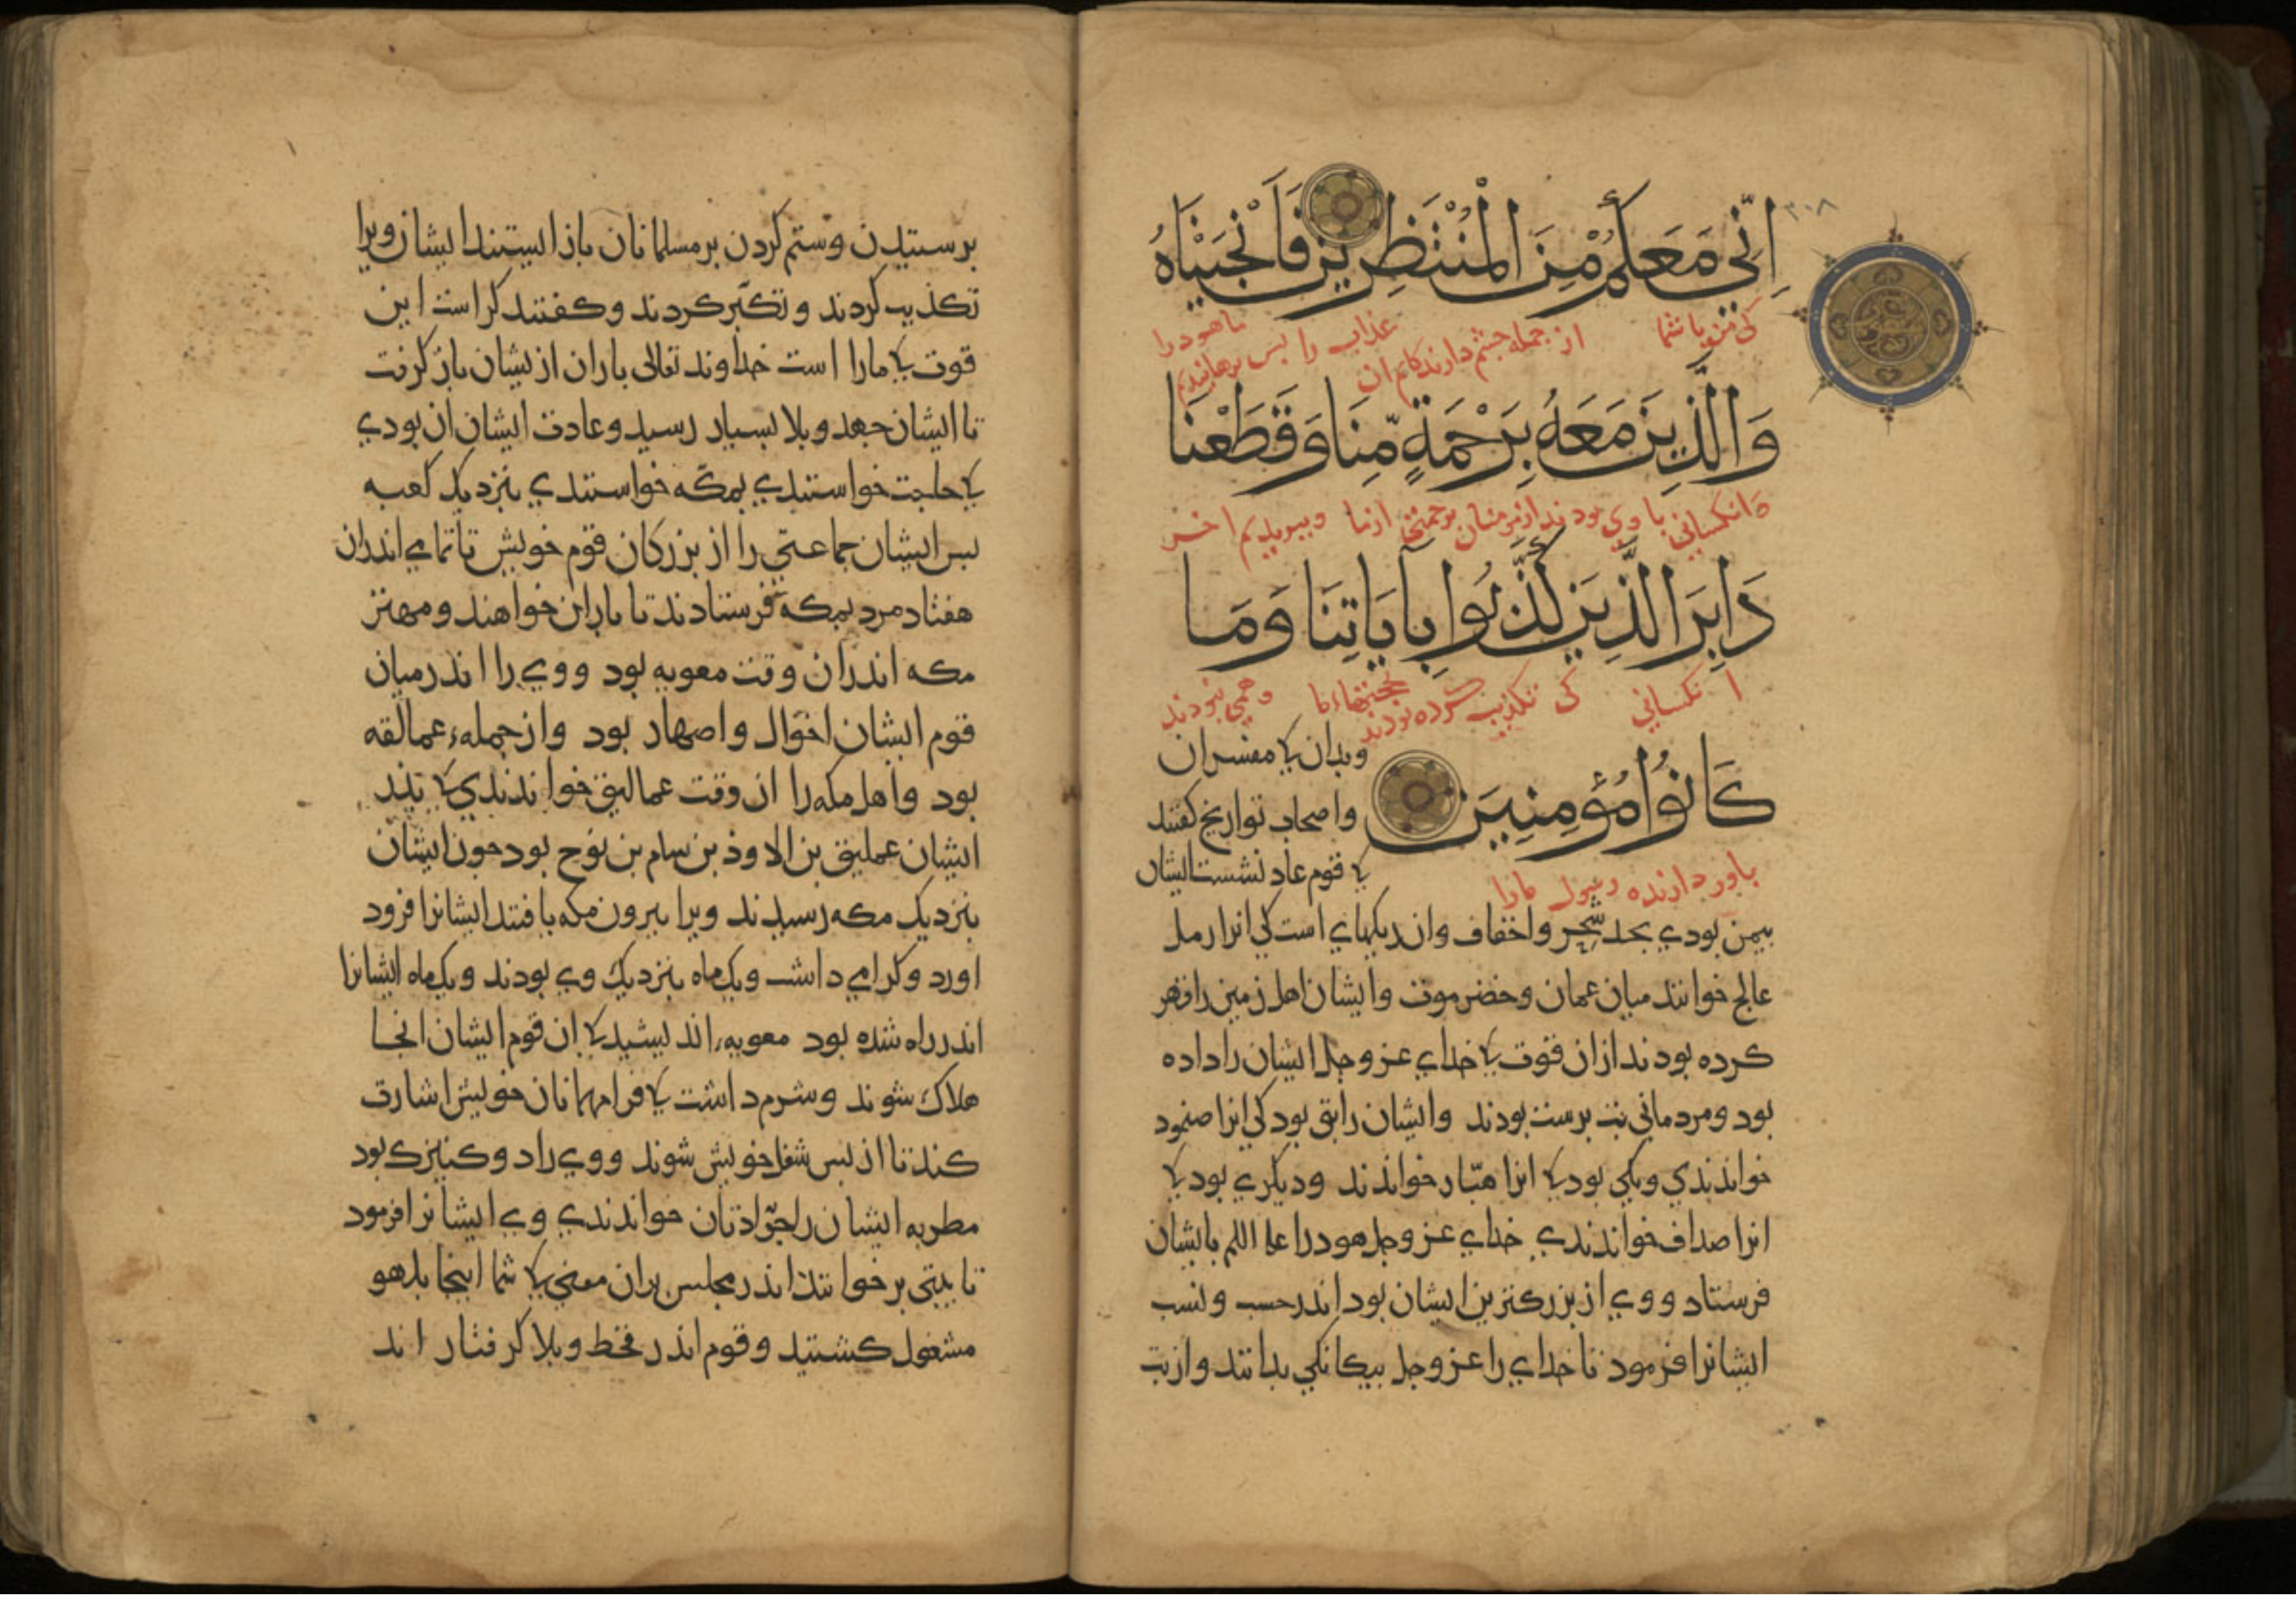 اِنّي مَعَكُمْ مِنَ الْمُنْتَظِرِيْنَ فَاَنْجَيْنَاهُ
كي من با شما از جمله چشم دارندكانم ان عذاب را بس برهانيديم ما هود را
وَالَّذِيْنَ مَعَهُ بِرَحْمَةٍ مِّنَا وَقَطَعْنَا
وانكساني با وي بودند از مومنان برحمتي از ما و ببريديم اخر
دَابِرَ الَّذِيْنَ كَذَّبُوا بِآيَاتِنَا وَمَا
انكساني كي تكذيب كرده بودند بحجتهاء ما و همي نبودند
كَانُوْا مُؤمِنِيْنَ
باور دارنده رسول مارا
وبدان كا مفسران
واصحاب تواريخ كفتند
كا قوم عاد نشست ايشان
بيمن بودي بحد شحر واحقاف وان ريكهاي است كي انرا رمل
عالج خوانند ميان عمان وحضرموت وايشان اهل زمين را قهر
كرده بودند از ان قوت كا خداي عز وجل ايشان را داده
بود ومردماني بت برست بودند وايشان را بتي بود كي انرا صمود
خواندندي ويكي بود كا انرا هبّار خواندند وديكري بود كا
انرا صداف خواندندي خداي عز وجل هود را عليه السلم بايشان
فرستاد ووي از بزركترين ايشان بود اندر حسب ونسب
ايشانرا فرمود تا خداي را عز وجل بيكانكي بدانند واز بت
برستيدن وستم كردن بر مسلمانان باز ايستند ايشان ويرا
تكذيب كردند وتكبّر كردند وكفتند كراست اين
قوت كا مارا است خداوند تعالى باران از يشان باز كرفت
تا ايشان جهد وبلا بسيار رسيد وعادت ايشان ان بودي
كا حاجت خواستندي بمكّه خواستندي بنزديك كعبه
بس ايشان جماعتي را از بزركان قوم خويش تا تمامي اندران
هفتاد مرد بمكه فرستادند تا باران خواهند ومهتر
مكه اندران وقت معويه بود ووي را اندر ميان
قوم ايشان اخوال واصهار بود واز جملهء عمالقه
بود واهل مكه را ان وقت عماليق خواندندي كا بدر
ايشان عمليق بن الاوذ بن سام بن نوح بود جون ايشان
بنزديك مكه رسيدند ويرا بيرون مكه يافتند ايشانرا فرود
اورد وكرامي داشت ويك ماه بنزديك وي بودند ويك ماه ايشانرا
اندر راه شده بود معويه انديشيد كا ان قوم ايشان انجا
هلاك شوند وشرم داشت كا فرا مهمانان خويش اشارت
كند تا از بس شغل خويش شوند ووي را دو كنيزك بود
مطربه ايشان را جرّادتان خواندندي وي ايشانرا فرمود
تا بيتي بر خوانند اندر مجلس بران معني كا شما اينجا بلهو
مشغول كشتيد وقوم اندر قحط وبلا كرفتار اند